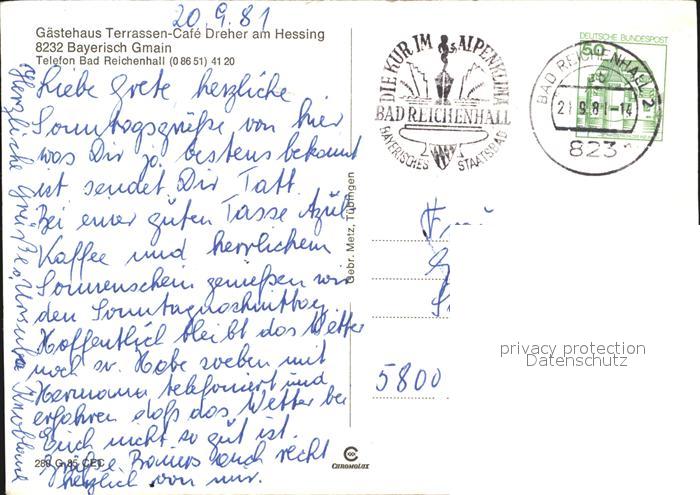 20.9.81
Gästehaus Terrassen-Café Dreher am Hessing
8232 Bayerisch Gmain
Telefon Bad Reichenhall (0 86 51) 41 20
Liebe Grete herzliche
Sonntagsgrüße von hier
was Dir ja bestens bekannt
ist sendet Dir
Bei einer guten Tasse Azul
Kaffee und herrlichem
Sonnenschein genießen wir
den Sonntagnachmittag
Hoffentlich bleibt das Wetter
noch so. Habe soeben mit
Hermann telefoniert und
erfahren daß das Wetter bei
Euch nicht so gut ist.
Grüße recht
herzlich von mir.
Herzliche Grüße Ursula
288 G 85 CEC
CHROMOLUX
Gebr. Metz, Tübingen
DIE KUR IM ALPENKLIMA
BAD REICHENHALL
BAYERISCHES STAATSBAD
DEUTSCHE BUNDESPOST
50
BAD REICHENHALL 2
21.9.81-14
823
5800
privacy protection
Datenschutz